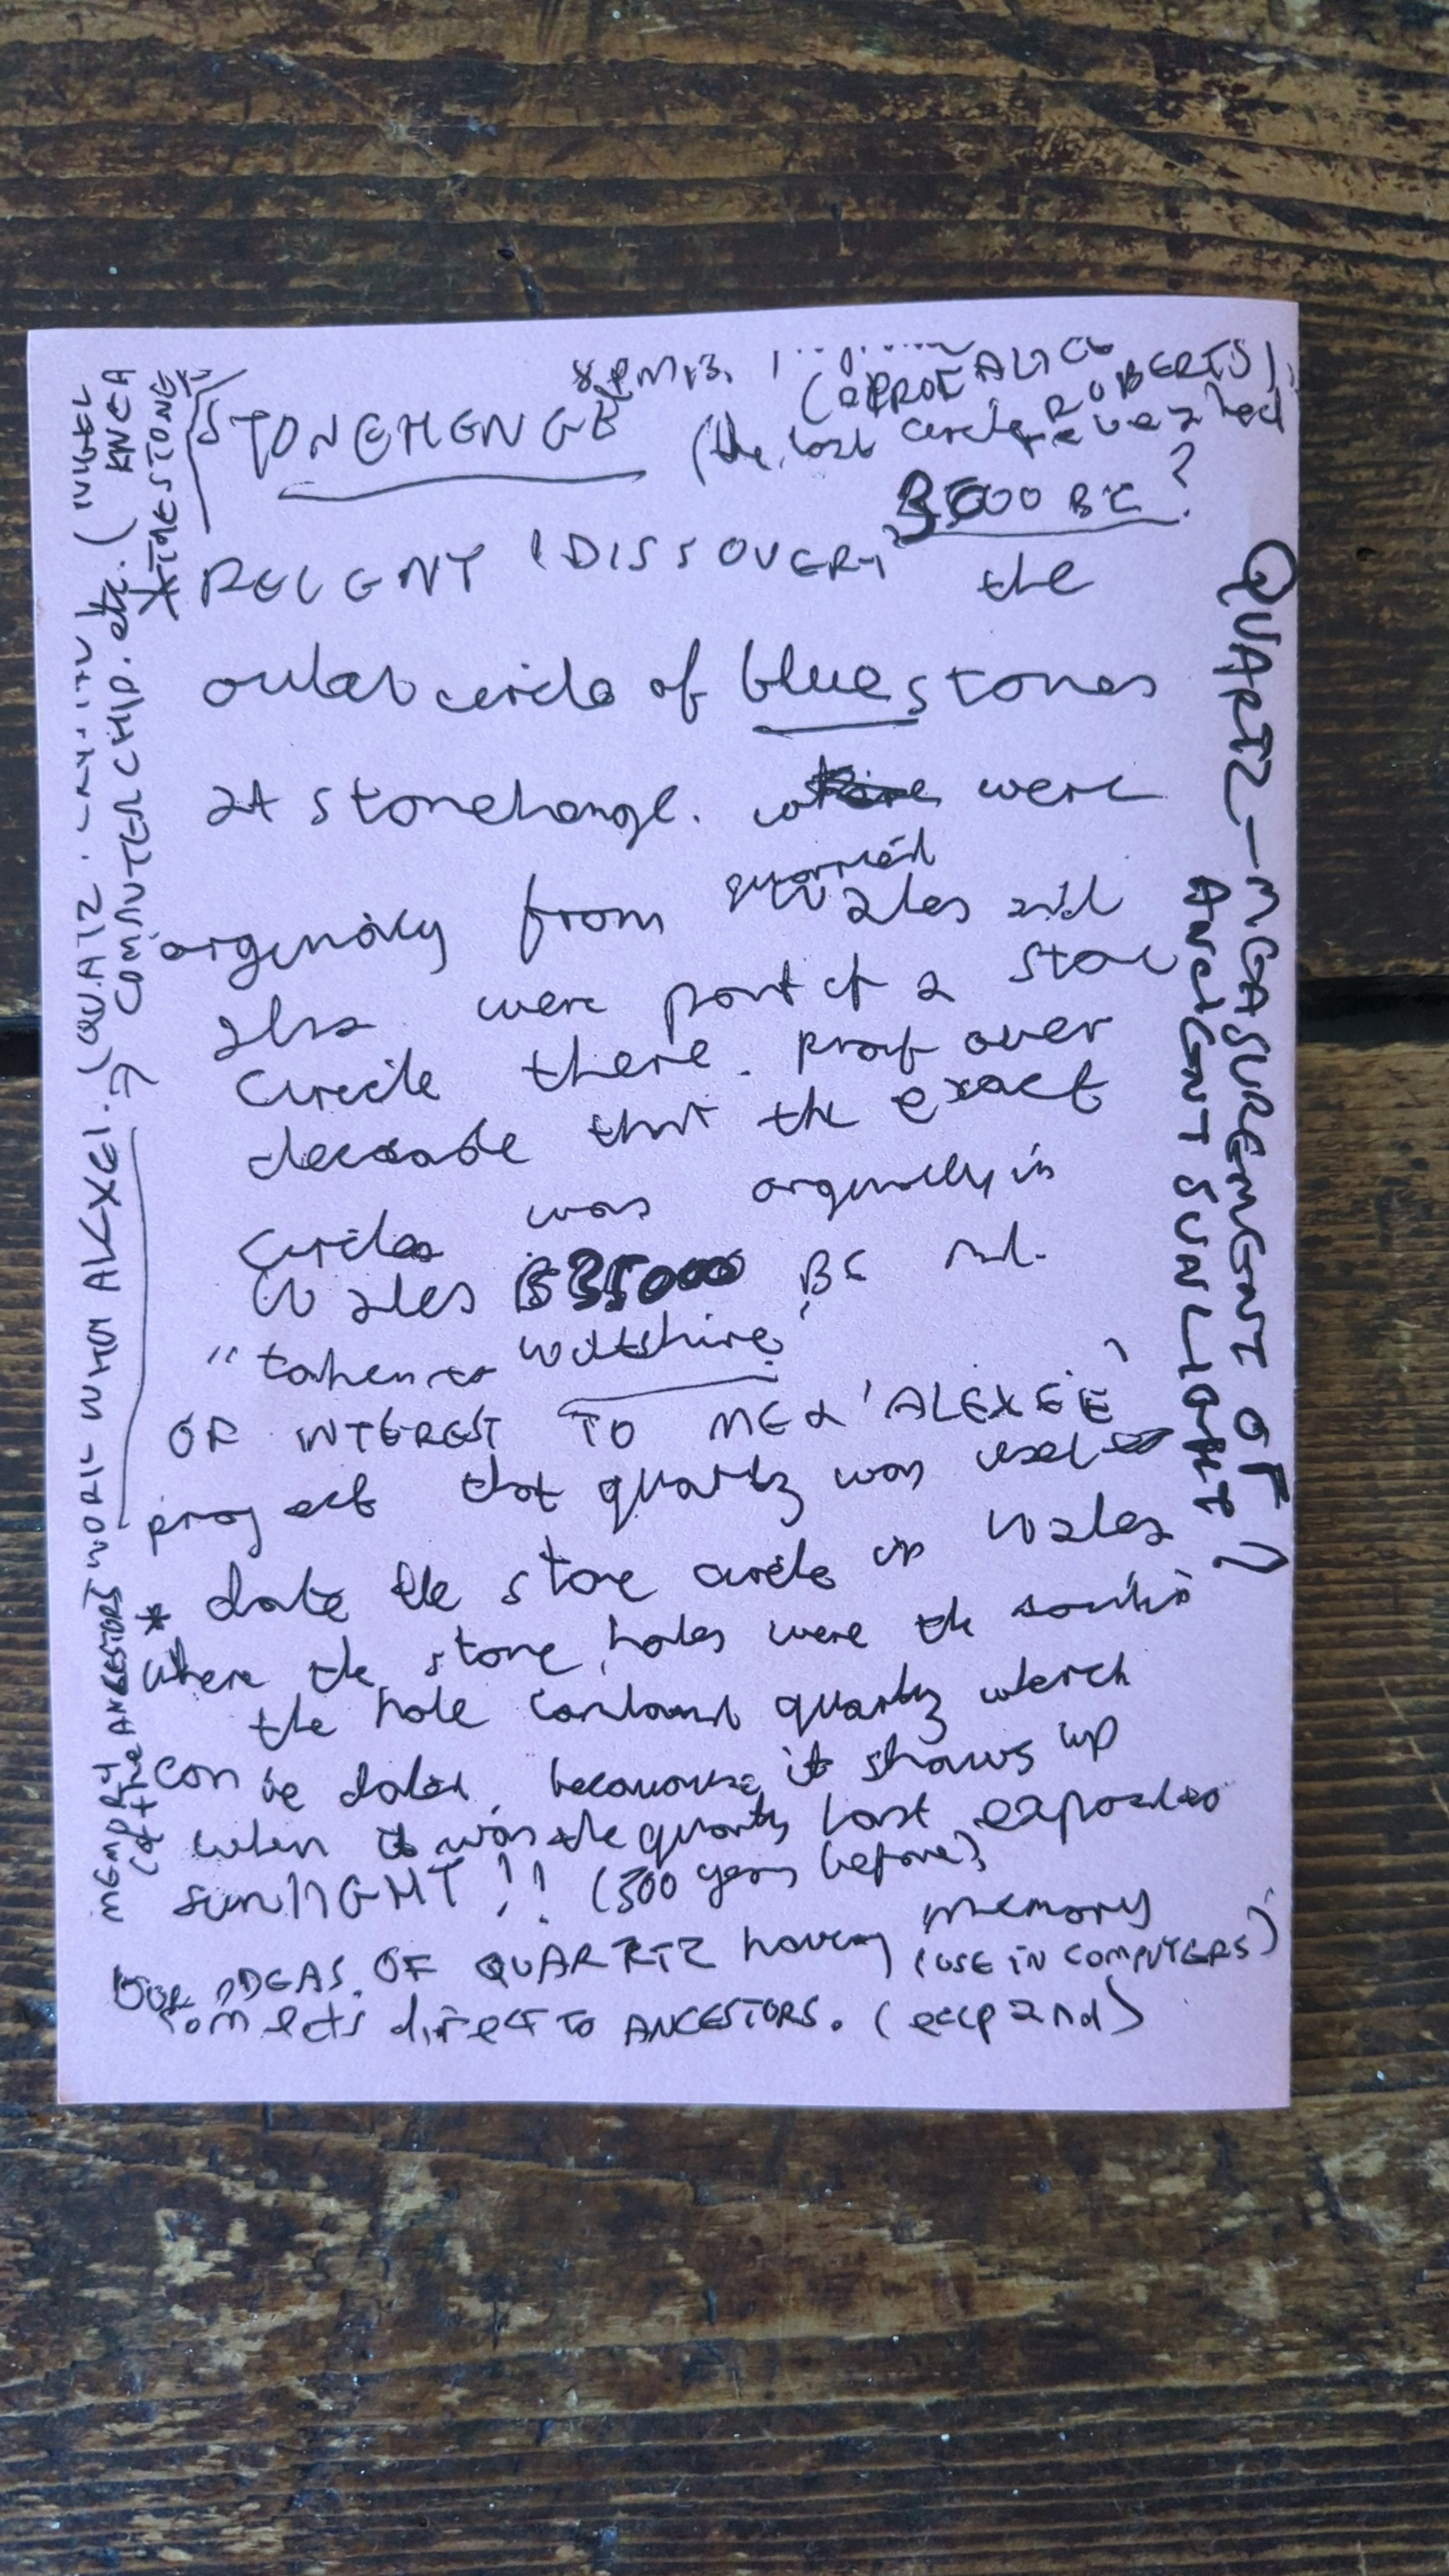 STONEHENGE
(PROF ALICE ROBERTS)
(the lost circle revealed
3000 BC?
RECENT 'DISSOVERY' the
outer circle of bluestones
at stonehenge. were
quarried
orginaly from Wales and
also were part of a stone
circle there. proof over
decade that the exact
circle was orginally in
Wales BC
"taken to Wiltshire"
OF INTEREST TO ME & 'ALEXEE'
project that quartz was used to
date the stone circle in Wales
* where the stone holes were the
the hole contained quartz which
can be dated because it shows up
when it was the quartz last exposed to
sunlIGHT!! (300 years before)
OUR IDEAS OF QUARTZ having memory
(USE IN COMPUTERS)
connects direct TO ANCESTORS. (expand)
QUARTZ — MEASUREMENT OF
ANCIENT SUNLIGHT?
MEMORY WORK WHM ALEXEI. (QUATZ.
(of the ANCESTORS
→ COMPUTER CHIP. etc. (NIGEL
KNEA
* TIMESTONE